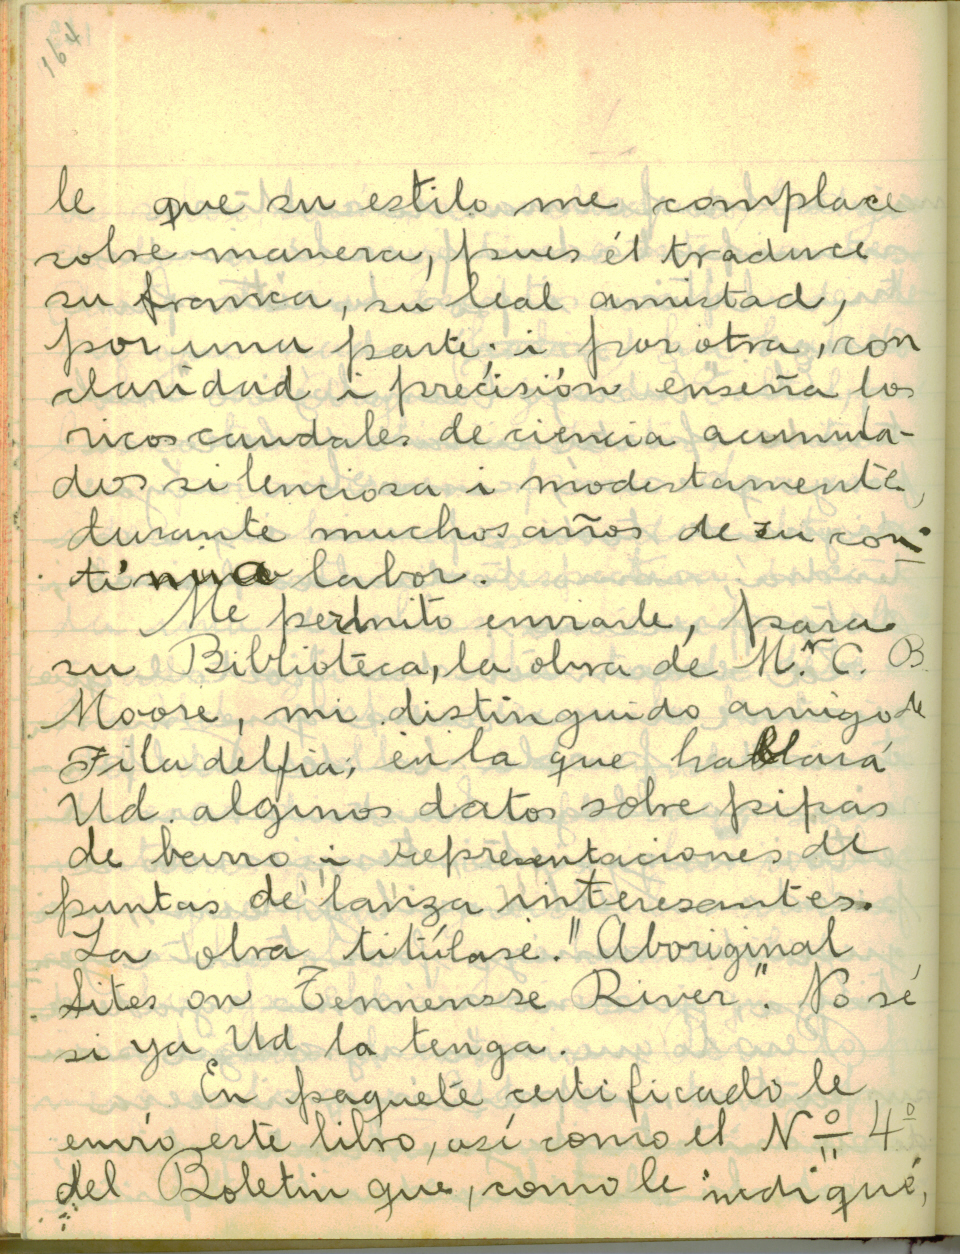 164
le que su estilo me complace
sobre manera, pues él traduce
su franca, su leal amistad,
por una parte; i por otra, con
claridad i precisión enseña los
ricos caudales de ciencia acumula-
dos silenciosa i modestamente,
durante muchos años de su con-
tínua labor.
Me permito enviarle, para
su Biblioteca, la obra de Mr. C. B.
Moore, mi distinguido amigo de
Filadelfia; en la que hallará
Ud. algunos datos sobre pipas
de barro i representaciones de
puntas de lanza interesantes.
La obra titúlase. "Aboriginal
Sites on Tennensse River". No sé
si ya Ud la tenga.
En paquete certificado le
envío este libro, así como el Nº 4º
del Boletin que, como le indiqué,